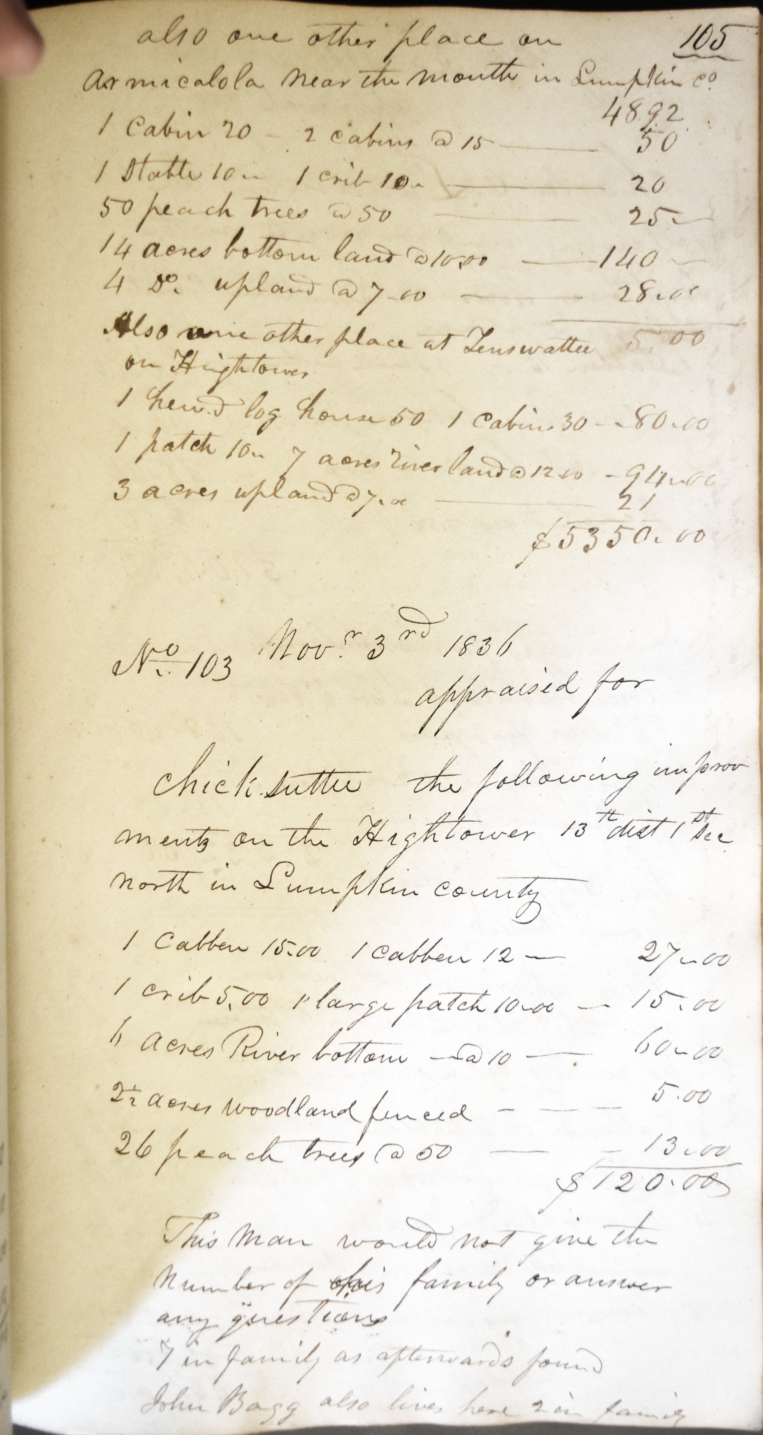 105
also one other place on
Armicalola near the mouth in Lumpkin co
4892
1 Cabin 20 - 2 cabins @ 15 — 50
1 Stable 10.. 1 crib 10.. — 20
50 peach trees @ 50 — 25..
14 acres bottom land @ 10.00 — 140
4 Do. upland @ 7.00 — 28.00
Also one other place at Tenswattee 5 00
on Hightower
1 hew.d log house 50 1 Cabin. 30 - 80.00
1 patch 10.. 7 acres River land @ 12.00 - 94.00
3 acres upland @ 7.00 — 21
$5350.00
No. 103 Novr. 3rd 1836
appraised for
Chick.suttee the following improv
ments on the Hightower 13th dist 1st Sec
north in Lumpkin county
1 Cabben 15.00 1 cabben 12 — 27.00
1 crib 5.00 1 large patch 10.00 — 15.00
6 acres River bottom — @ 10 — 60.00
2½ acres woodland fenced - — 5.00
26 peach trees @ 50 — 13.00
$120.00
This man would not give the
number of his family or answer
any questions
7 in family as afterwards found
John Bagg also lives here 2 in family